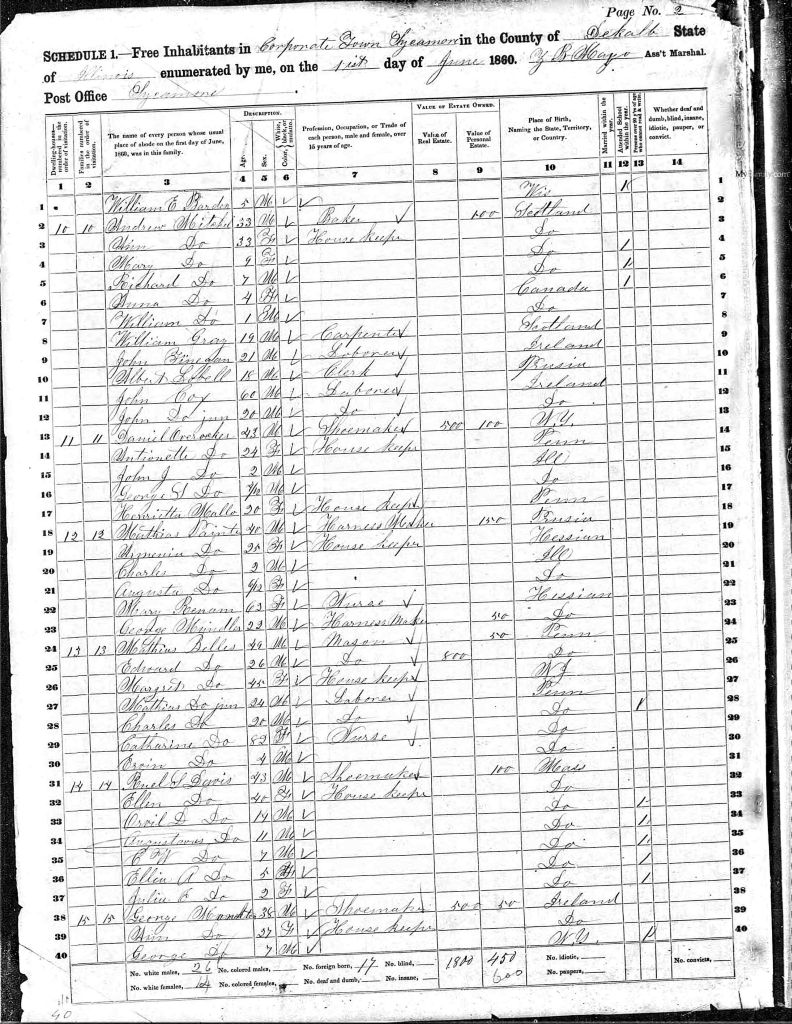 Page No. 2
SCHEDULE 1.—Free Inhabitants in Corporate Town Sycamore in the County of Dekalb State
of Illinois enumerated by me, on the 1st day of June 1860. Ass't Marshal.
Post Office Sycamore
Dwelling-houses—numbered in the order of visitation.
Families numbered in the order of visitation.
The name of every person whose usual place of abode on the first day of June, 1860, was in this family.
DESCRIPTION.
Age.
Sex.
Color, White, black, or mulatto.
Profession, Occupation, or Trade of each person, male and female, over 15 years of age.
VALUE OF ESTATE OWNED.
Value of Real Estate.
Value of Personal Estate.
Place of Birth, Naming the State, Territory, or Country.
Married within the year.
Attended School within the year.
Persons over 20 y'rs of age who cannot read & write.
Whether deaf and dumb, blind, insane, idiotic, pauper, or convict.
1 2 3 4 5 6 7 8 9 10 11 12 13 14
1 William E 5 M Wis 1
2 10 10 Andrew Mitchel 33 M Baker 100 Scotland 2
3 Ann Do 33 F House keeper Do 3
4 Mary Do 9 F Do 1 4
5 Richard Do 7 M Do 1 5
6 Do 4 F Canada 1 6
7 William Do 1 M Do 7
8 William Gray 19 M Carpenter Scotland 8
9 John 21 M Laborer Ireland 9
10 Albert 18 M Clerk Rusia 10
11 John Cox 60 M Laborer Ireland 11
12 John Do jun 20 M Do Do 12
13 11 11 Daniel 43 M Shoemaker 500 100 N.Y. 13
14 Do 24 F House keeper Penn 14
15 John J Do 2 M Ill 15
16 George Do M Do 16
17 Henrietta 20 F House keeper Penn 17
18 12 12 Mathias 40 M Harness Maker 150 Prusia 18
19 Armenia Do 25 F House keeper Hessian 19
20 Charles Do 2 M Ill 20
21 Augusta Do F Do 21
22 Mary 63 F Nurse Hessian 22
23 George 22 M Harness Maker 50 Do 23
24 13 13 Mathius Belles 49 M Mason 50 Penn 24
25 Edward Do 26 M Do 800 Do 25
26 Margret Do 45 F House keeper N J 26
27 Mathius Do jun 24 M Laborer Penn 27
28 Charles Do 20 M Do Do 1 28
29 Catharine Do 82 F Nurse Do 29
30 Ervin Do 4 M Do 30
31 14 14 Ruel S Davis 43 M Shoemaker 100 Mas 31
32 Ellen Do 40 F House keeper Do 32
33 Orvil D Do 14 M Do 1 33
34 Do 11 M Do 1 34
35 Do 7 M Do 1 35
36 A Do 5 F Do 1 36
37 Julia E Do 2 F Do 1 37
38 15 15 George 38 M Shoemaker 500 50 Ireland 38
39 Ann Do 27 F House keeper Do 39
40 George Do 7 M N.Y. 1 40
No. white males, 26 No. colored males, No. foreign born, 17 No. blind, 1800 450 No. idiotic, No. convicts,
No. white females, 14 No. colored females, No. deaf and dumb, No. insane, 600 No. paupers,
40